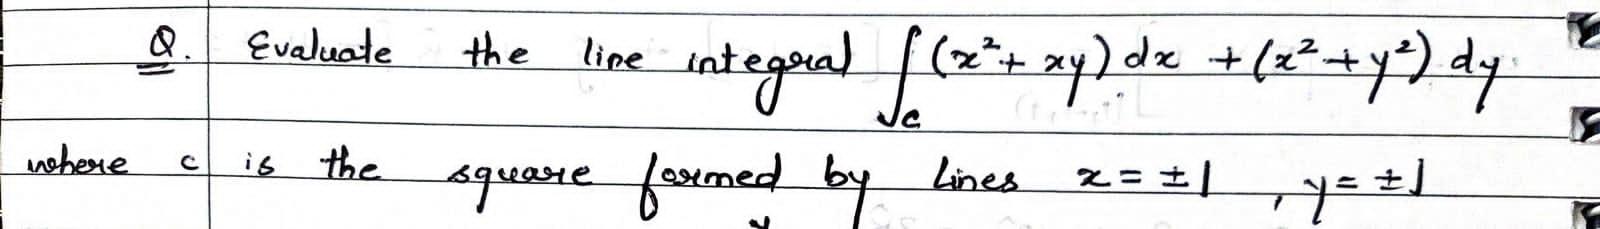 Q. Evaluate the line integral ∫_C (x² + xy) dx + (x² + y²) dy
where c is the square formed by lines x = ±1, y = ±1